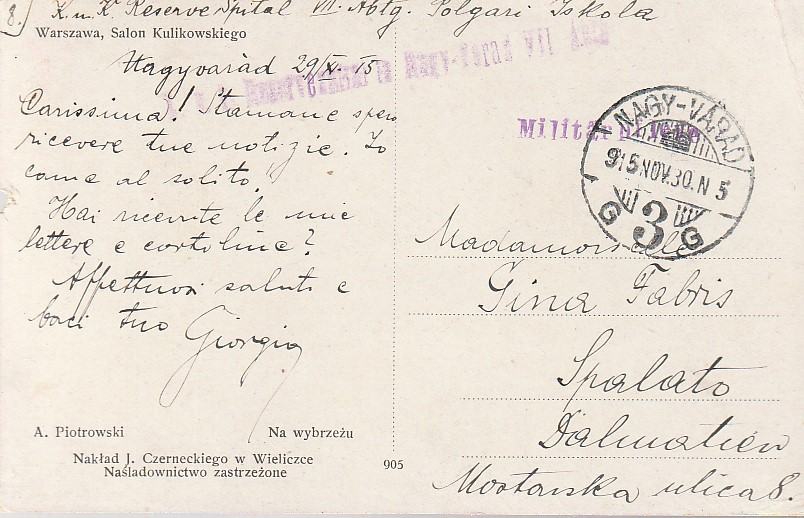 8.) K. u. K. Reserve Spital VII. Abtg. Polgari Iskola
Warszawa, Salon Kulikowskiego
Nagyvarad 29/XI. 15
Carissima! Stamane spero
ricevere tue notizie. Io
come al solito!
Hai ricevute le mie
lettere e cartoline?
Affettuosi saluti e
baci tuo Giorgio
A. Piotrowski Na wybrzeżu
Nakład J. Czerneckiego w Wieliczce
Naśladownictwo zastrzeżone
905
in Nagy-Várad VII
Militärpflege
NAGY-VÁRAD
915 NOV. 30. N 5
G 3 G
Madamoiselle
Gina Fabris
Spalato
Dalmatien
Mostarska ulica 8.